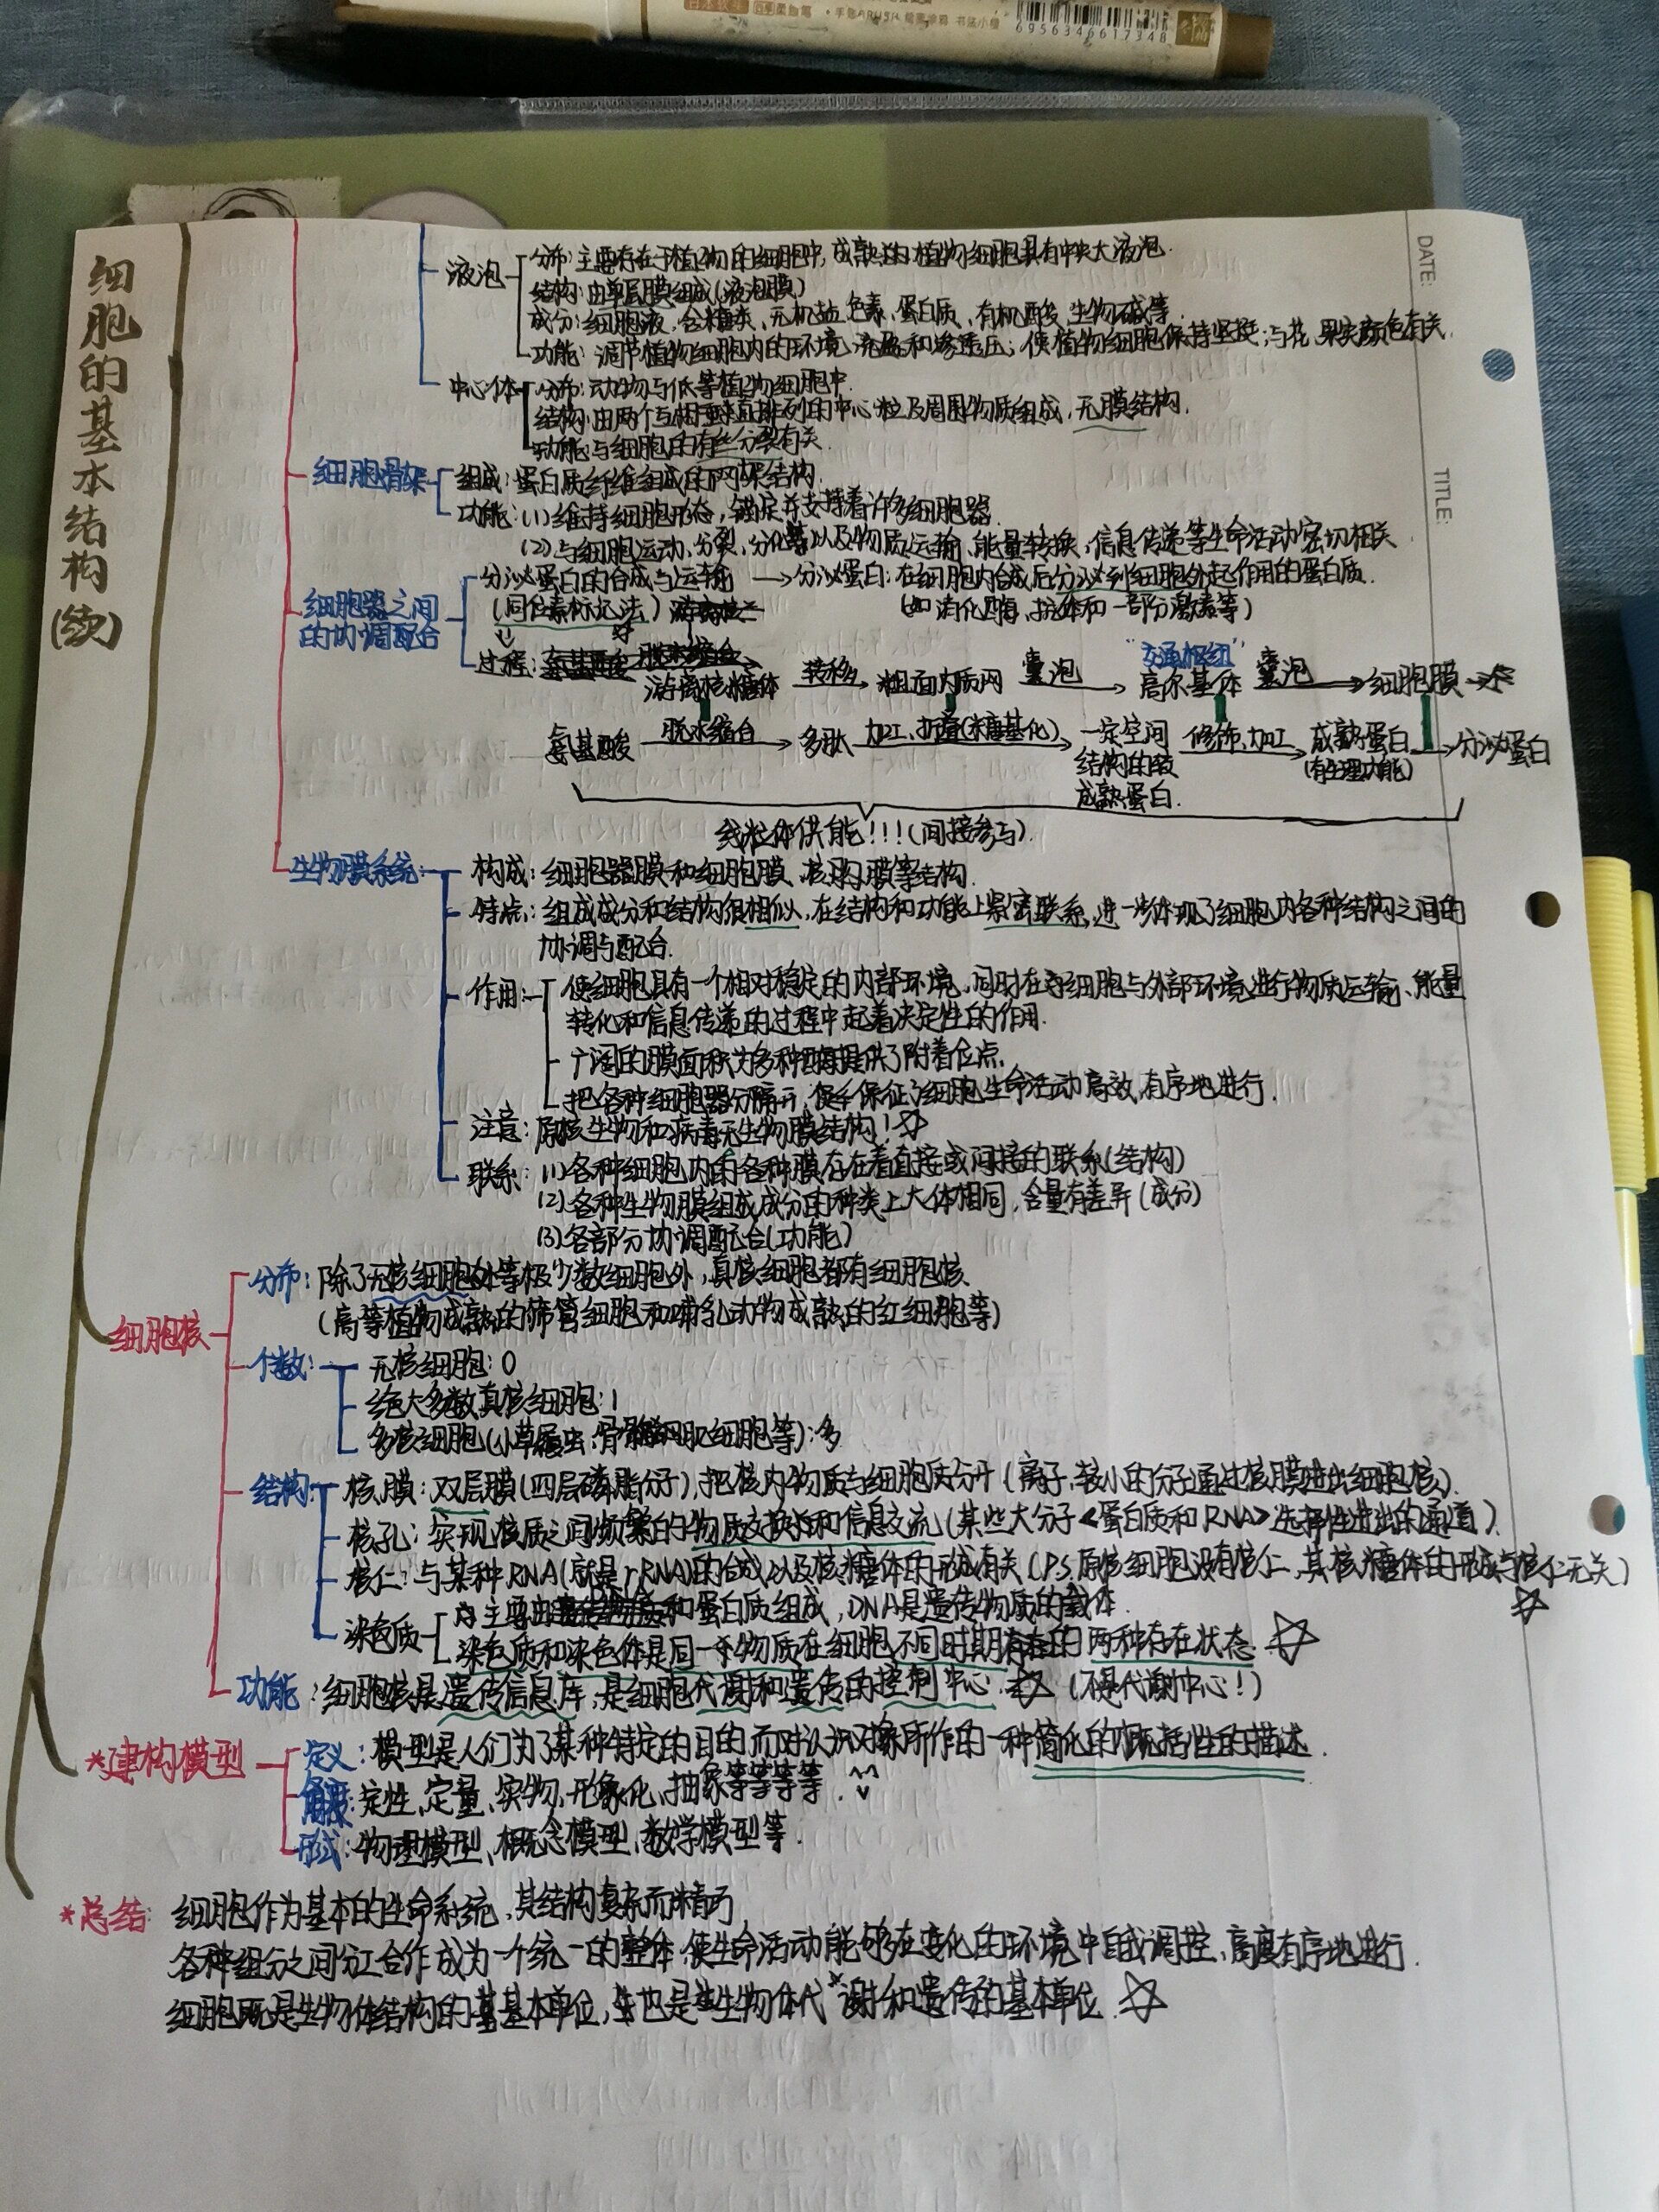 6956346617348
DATE:
TITLE:
细胞的基本结构(续)
液泡
分布:主要存在于植物的细胞中,成熟的植物细胞具有中央大液泡.
结构:由单层膜组成(液泡膜)
成分:细胞液,含糖类、无机盐、色素、蛋白质、有机酸、生物碱等.
功能:调节植物细胞内的环境,
使植物细胞保持坚挺;与花、果实颜色有关.
中心体
分布:动物与低等植物细胞中.
结构:由两个互相垂直排列的中心粒及周围物质组成,无膜结构.
功能:与细胞的有丝分裂有关.
细胞骨架
组成:蛋白质纤维组成的网架结构.
功能:(1)维持细胞形态,锚定并支撑着许多细胞器.
(2)与细胞运动、分裂、分化等以及物质运输、能量转换、信息传递等生命活动密切相关
细胞器之间的协调配合
分泌蛋白的合成与运输 →分泌蛋白:在细胞内合成后分泌到细胞外起作用的蛋白质.
(同位素标记法)
(如消化酶、抗体和一部分激素等)
"交通枢纽"
过程:
游离核糖体 转移→ 粗面内质网 囊泡→ 高尔基体 囊泡→细胞膜
氨基酸 脱水缩合→多肽 加工、折叠(糖基化)→一定空间结构的较成熟蛋白. 修饰、加工→成熟蛋白(有生理功能)→分泌蛋白
线粒体供能!!!(间接参与)
生物膜系统
构成:细胞器膜和细胞膜、核膜等结构.
特点:组成成分和结构很相似,在结构和功能上紧密联系,进一步体现了细胞内各种结构之间的
协调与配合.
作用:
使细胞具有一个相对稳定的内部环境,同时在细胞与外部环境进行物质运输、能量
转化和信息传递的过程中起着决定性的作用.
广阔的膜面积为多种酶提供了附着位点.
把各种细胞器分隔开,保证了细胞生命活动高效、有序地进行.
注意:原核生物和病毒无生物膜结构!☆
联系:(1)各种细胞内的各种膜存在着直接或间接的联系(结构)
(2)各种生物膜组成成分的种类上大体相同,含量有差异(成分)
(3)各部分协调配合(功能)
细胞核
分布:除了无核细胞等极少数细胞外,真核细胞都有细胞核
(高等植物成熟的筛管细胞和哺乳动物成熟的红细胞等)
个数:
无核细胞:0
绝大多数真核细胞:1
多核细胞(小草履虫、骨骼肌细胞等):多
结构
核膜:双层膜(四层磷脂分子),把核内物质与细胞质分开(离子、较小的分子通过核膜进出细胞核).
核孔:实现核质之间频繁的物质交换和信息交流(某些大分子<蛋白质和RNA>选择性进出的通道).
核仁:与某种RNA(就是rRNA)的合成以及核糖体的形成有关(P.S.原核细胞没有核仁,其核糖体的形成与核仁无关)
☆
染色质
主要由
和蛋白质组成,DNA是遗传物质的载体.
染色质和染色体是同一种物质在细胞不同时期的两种存在状态.☆
功能:细胞核是遗传信息库,是细胞代谢和遗传的控制中心.☆(不是代谢中心!)
*建构模型
定义:模型是人们为了某种特定的目的而对认识对象所作的一种简化的概括性的描述.
角度:定性、定量、实物、形象化、抽象等等等等.
形式:物理模型、概念模型、数学模型等.
*总结:细胞作为基本的生命系统,其结构复杂而精巧
各种组分之间分工合作成为一个统一的整体,使生命活动能够在变化的环境中自我调控、高度有序地进行.
细胞既是生物体结构的基本单位,也是生物体代谢和遗传的基本单位.☆